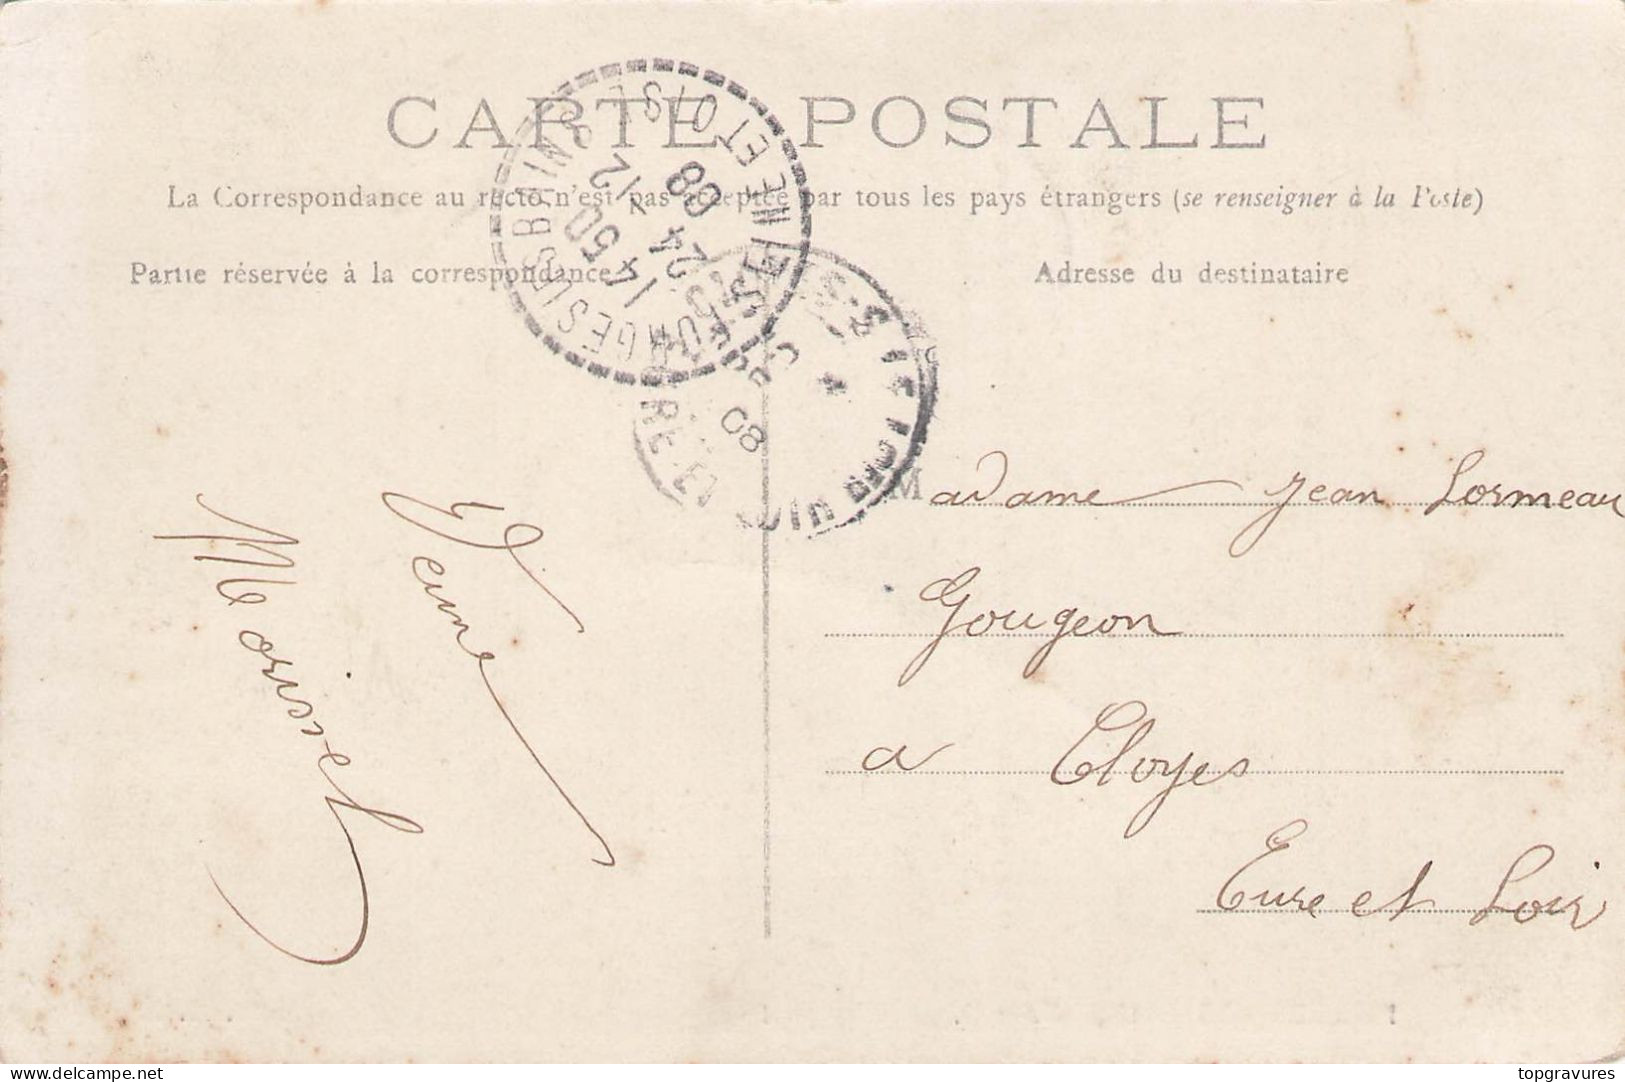 CARTE POSTALE
La Correspondance au recto n'est pas acceptée par tous les pays étrangers (se renseigner à la Poste)
Partie réservée à la correspondance
Adresse du destinataire
SEINE ET OISE
14 50
24 12
08
08
Madame Jean Lormeau
Gougeon
a Cloyes
Eure et Loir
Veuve
topgravures